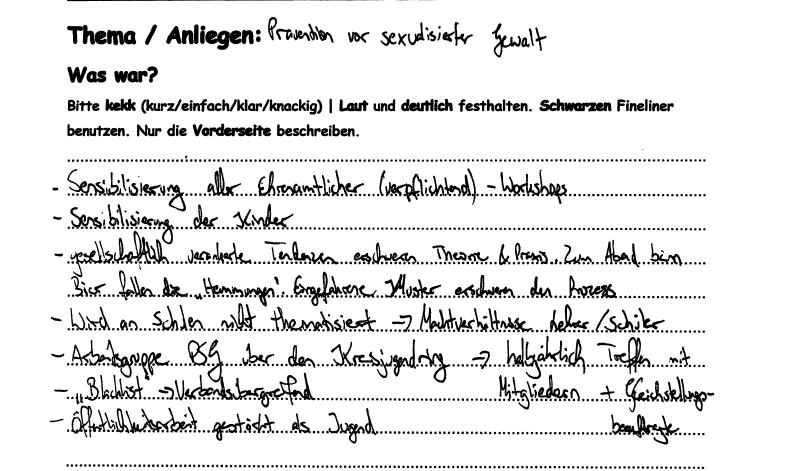 Thema / Anliegen: Prävention vor sexudisierter Gewalt
Was war?
Bitte kekk (kurz/einfach/klar/knackig) | Laut und deutlich festhalten. Schwarzen Fineliner
benutzen. Nur die Vorderseite beschreiben.
- Sensibilisierung aller Ehrenamtlicher (verpflichtend) - Workshops
- Sensibilisierung der Kinder
- gesellschaftlich verankerte Tendenzen erschweren Theorie & Praxis. Zum Abend beim
Bier fallen die „Hemmungen" Eingefahrene Muster erschweren den Prozess
- Wird an Schulen nicht thematisiert → Machtverhältnisse Lehrer/Schüler
- Arbeitsgruppe über den Kreisjugendring → halbjährlich Treffen mit
- „Blacklist" → Verbandsübergreifend Mitgliedern + Gleichstellungs-
- Öffentlichkeitsarbeit gestärkt als Jugend beauftragte